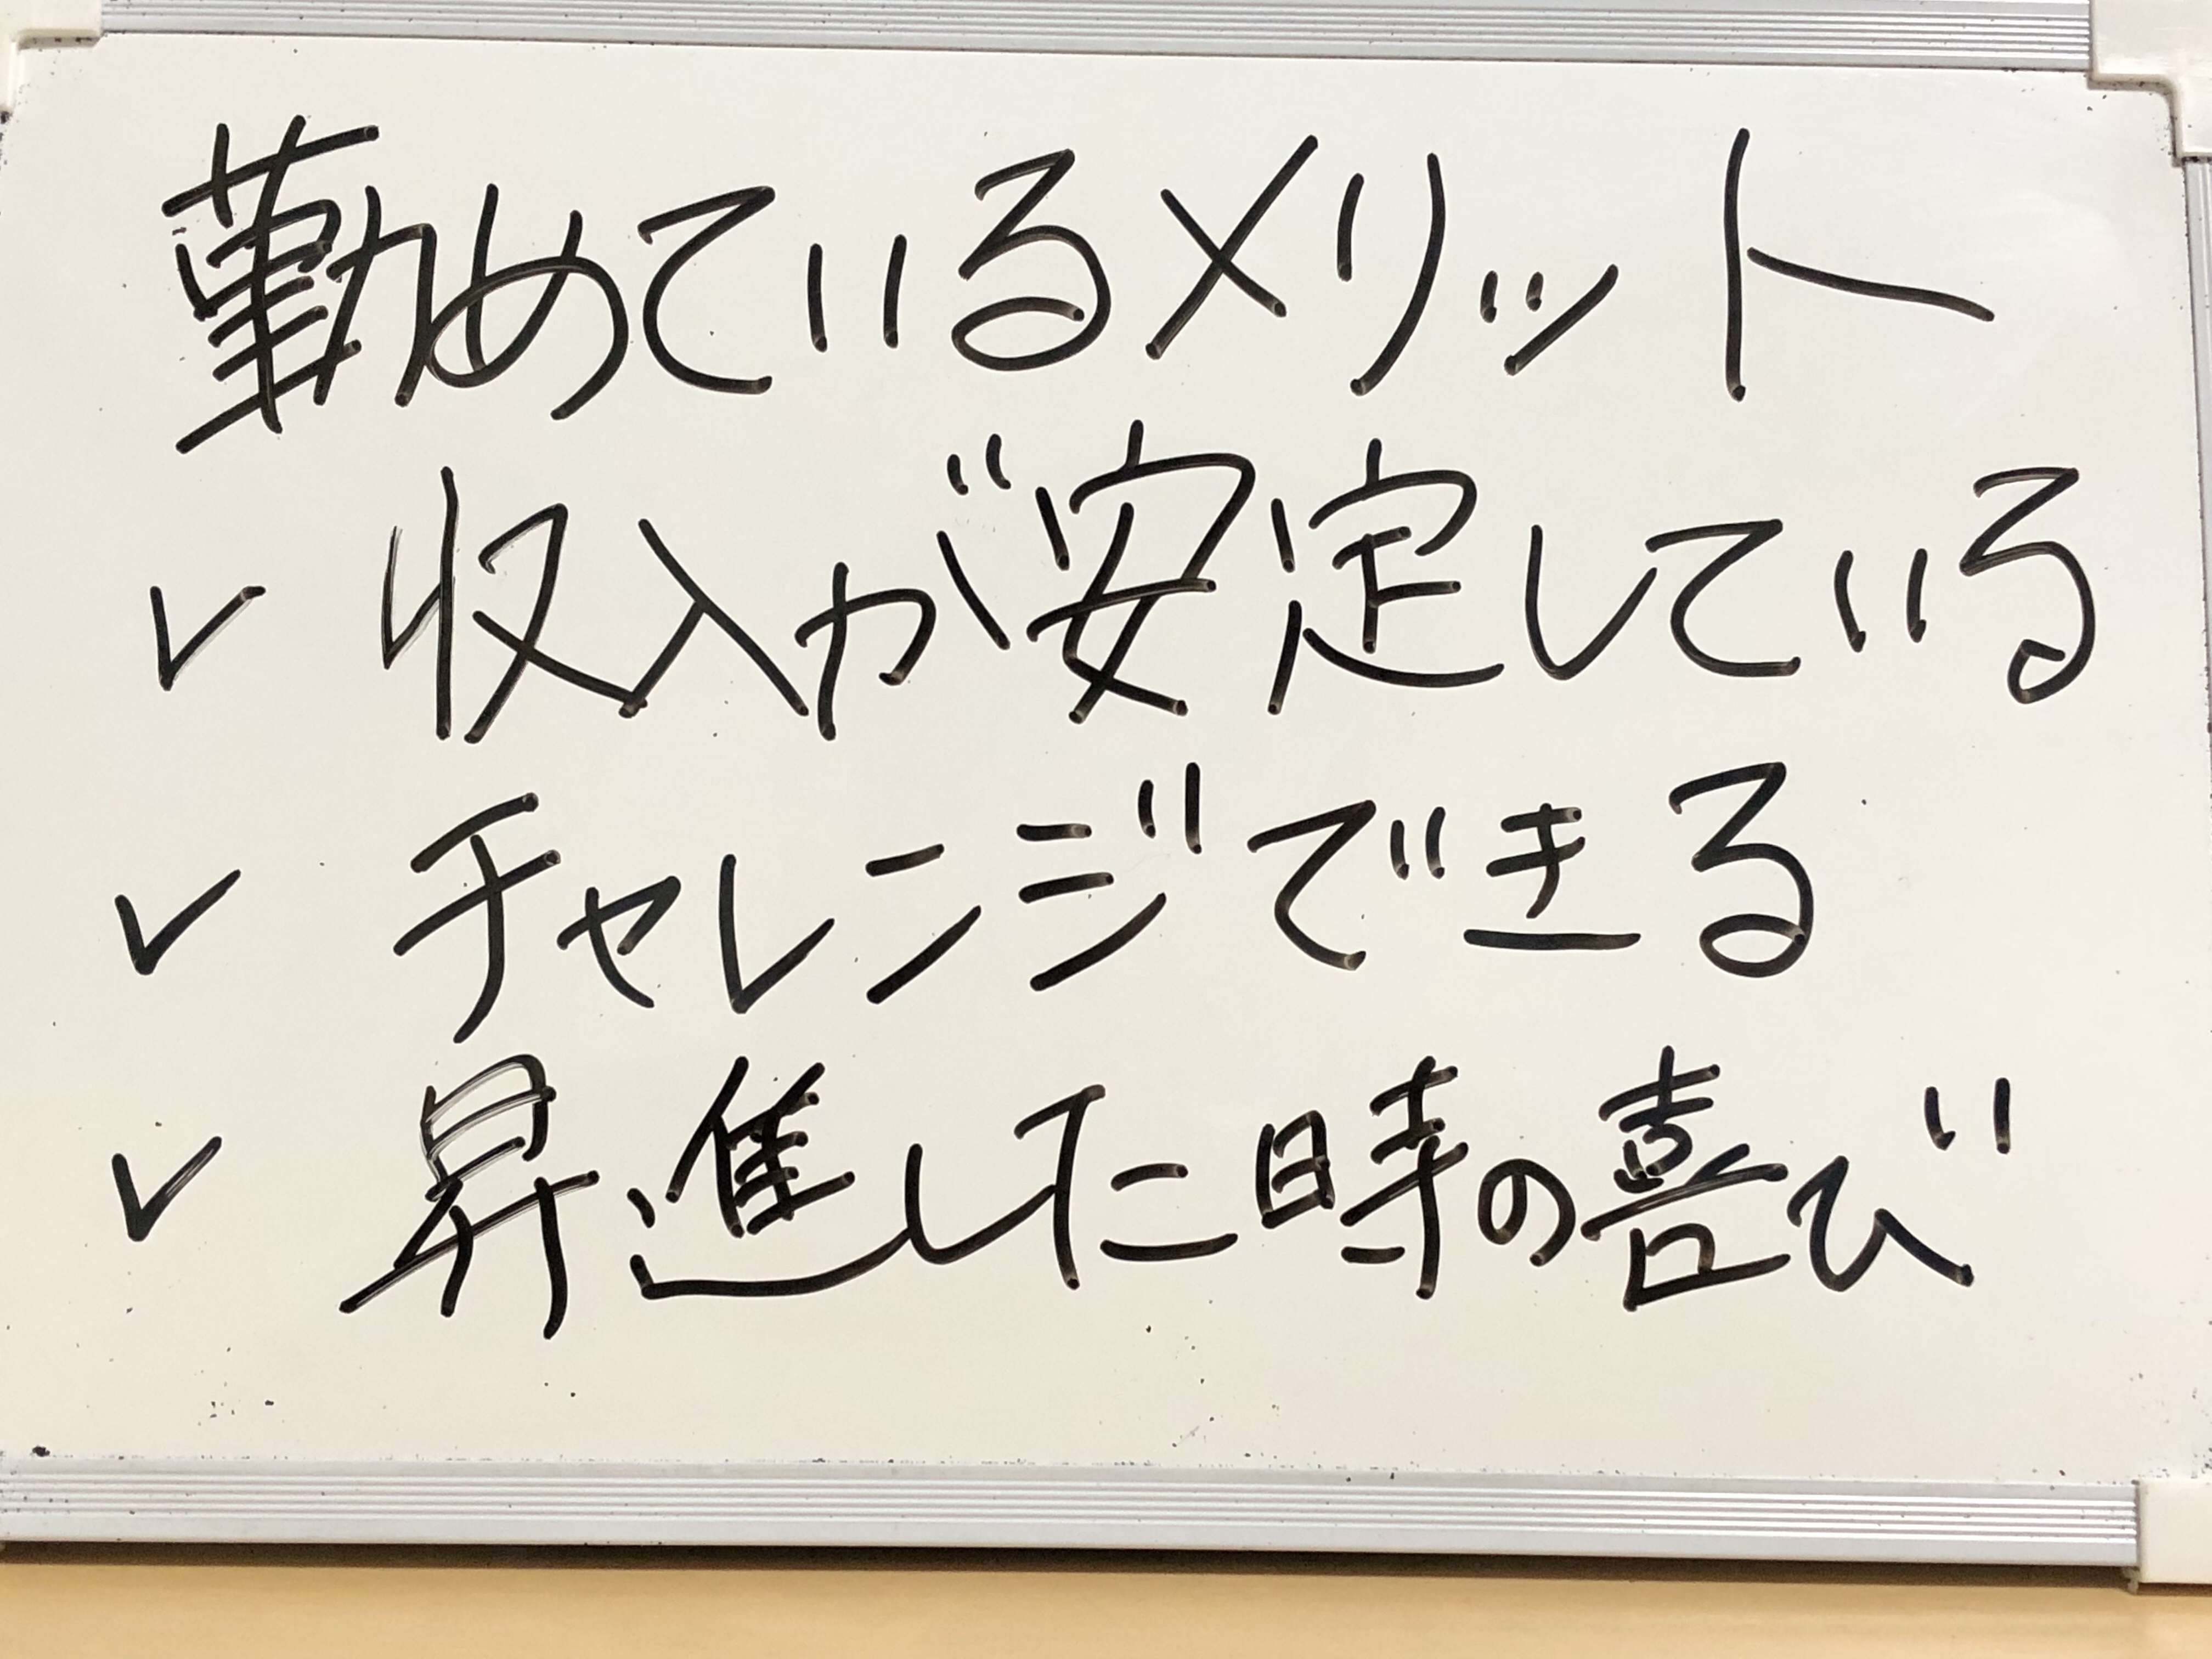 勤めているメリット
✓ 収入が安定している
✓ チャレンジできる
✓ 昇進した時の喜び